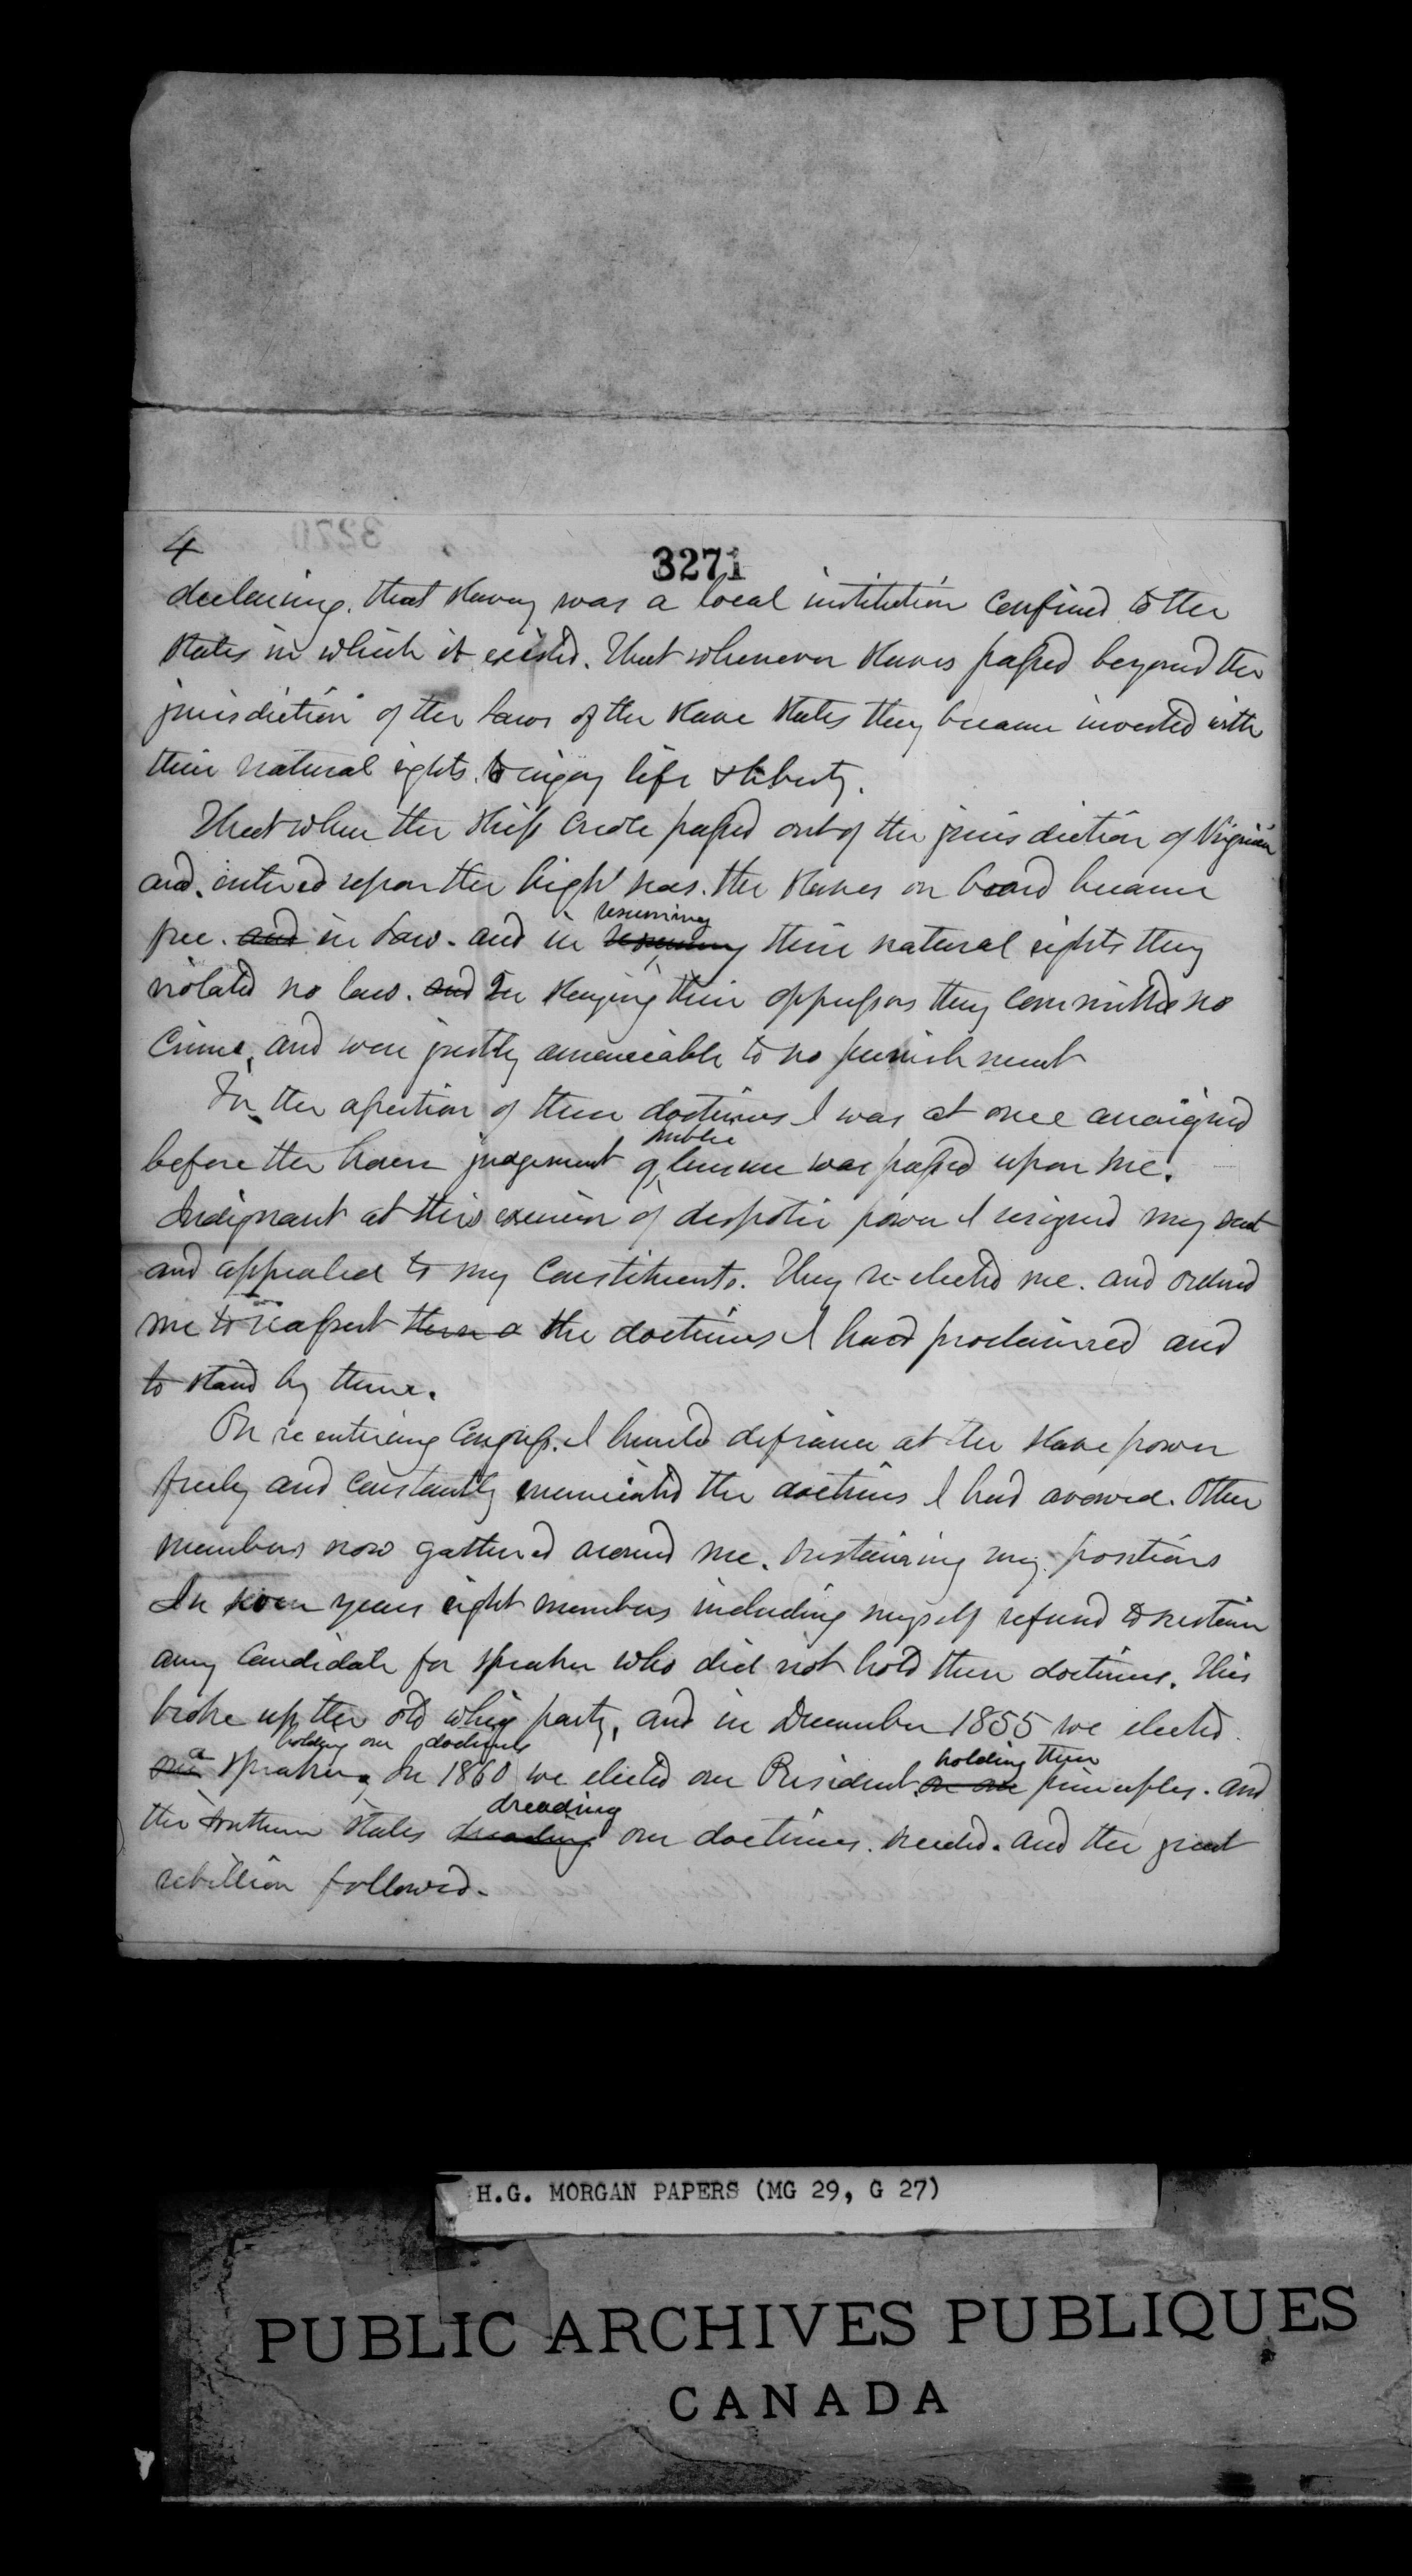 4
3271
declaring, that slavery was a local institution confined to the
States in which it existed. That whenever slaves passed beyond the
jurisdiction of the Laws of the slave States they became invested with
their natural rights to enjoy life & liberty.
That when the Ship Creole passed out of the jurisdiction of Virginia
and, entered upon the high seas. the slaves on board became
free. and in Law. and in resuming
resuming their natural rights they
violated no law. and In slaying their oppressors they committed no
crime, and were justly amenable to no punishment
For the assertion of these doctrines I was at once arraigned
before the house judgement of public censure was passed upon me.
Indignant at this exercise of despotic power I resigned my seat
and appealed to my Constituents. They re-elected me. and ordered
me to reassert these the doctrines I had proclaimed and
to stand by them.
On re entering Congress. I hurled defiance at the slave power
freely and constantly enunciated the doctrines I had avowed. Other
members now gathered around me. sustaining my positions
In seven years eight members including myself refused to sustain
any Candidate for speaker who did not hold these doctrines. This
broke up the old whig party, and in December 1855 we elected
our a speaker holding our doctrines. In 1860 we elected our President on our holding these principles. and
the Southern States dreading dreading our doctrines. seceded. and the great
rebellion followed.
H.G. MORGAN PAPERS (MG 29, G 27)
PUBLIC ARCHIVES PUBLIQUES
CANADA